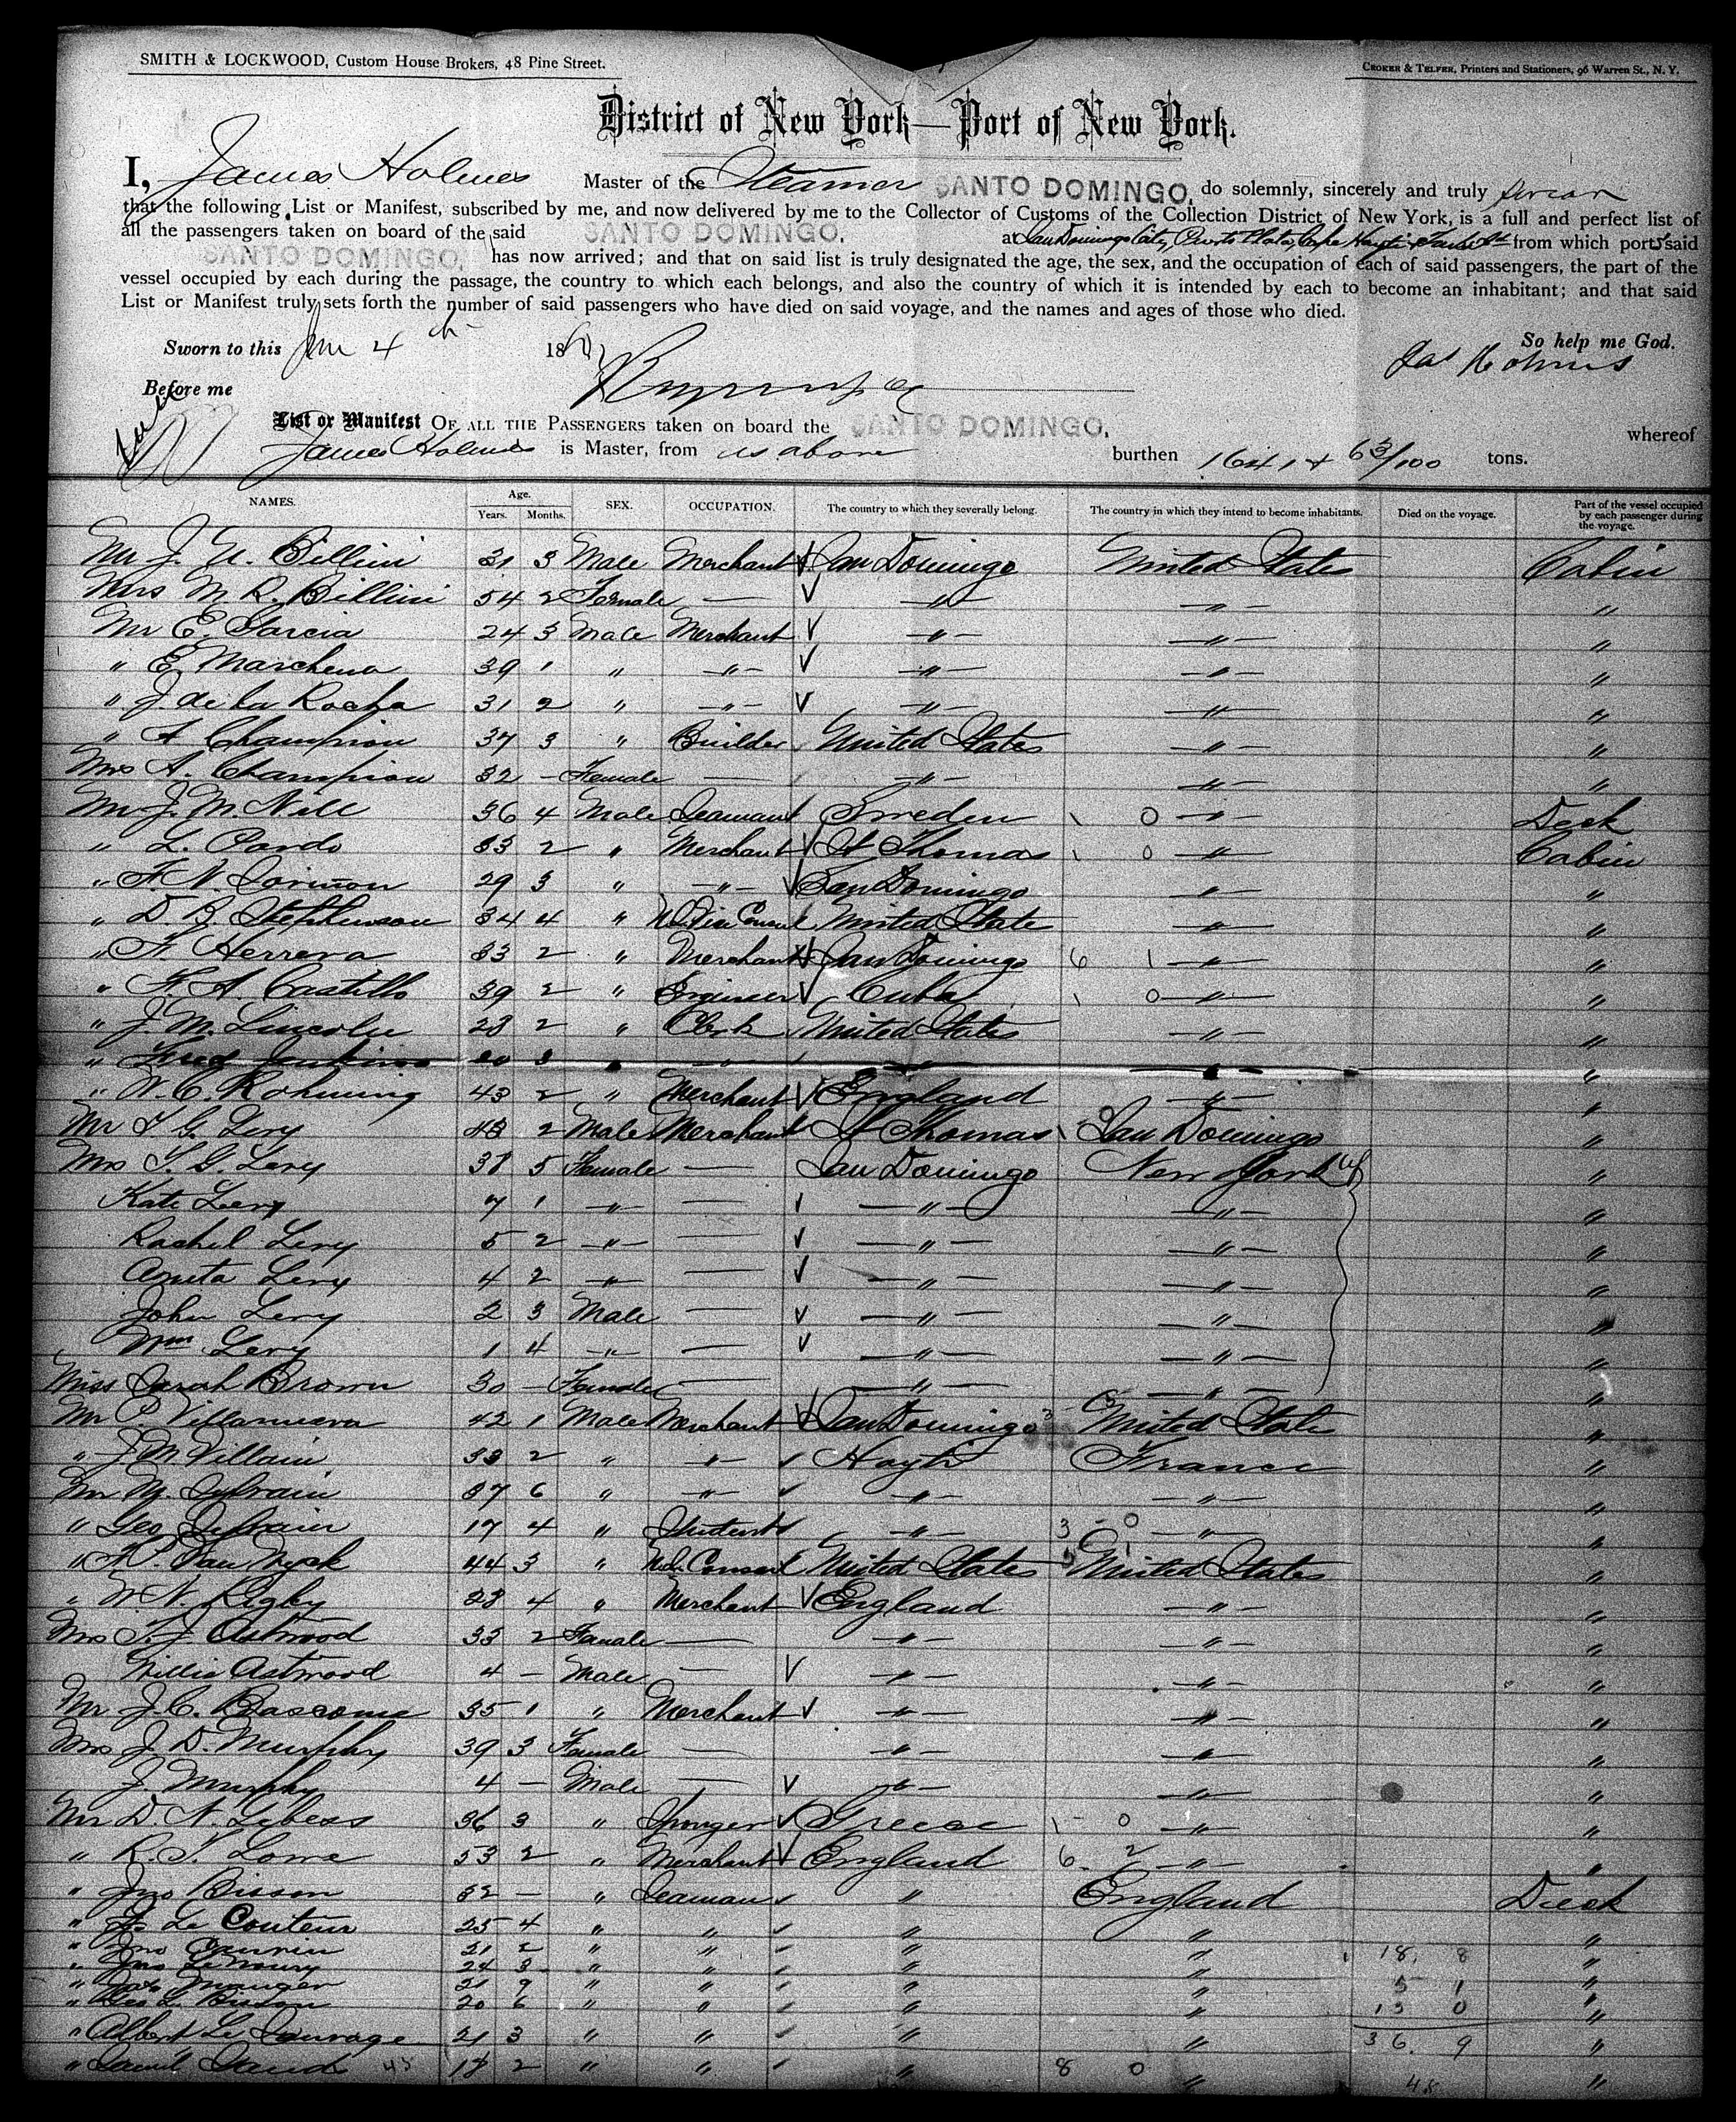 SMITH & LOCKWOOD, Custom House Brokers, 48 Pine Street.
CROKER & TELFER, Printers and Stationers, 96 Warren St., N. Y.
District of New York—Port of New York.
I, James Holmes Master of the Steamer SANTO DOMINGO, do solemnly, sincerely and truly swear
that the following List or Manifest, subscribed by me, and now delivered by me to the Collector of Customs of the Collection District of New York, is a full and perfect list of
all the passengers taken on board of the said SANTO DOMINGO, at San Domingo City, Puerto Plata, Cape Hayti & from which ports said
SANTO DOMINGO, has now arrived; and that on said list is truly designated the age, the sex, and the occupation of each of said passengers, the part of the
vessel occupied by each during the passage, the country to which each belongs, and also the country of which it is intended by each to become an inhabitant; and that said
List or Manifest truly sets forth the number of said passengers who have died on said voyage, and the names and ages of those who died.
Sworn to this 4th 188 So help me God.
Jas Holmes
Before me
List or Manifest OF ALL THE PASSENGERS taken on board the SANTO DOMINGO, whereof
James Holmes is Master, from as above burthen 1641 + 63/100 tons.
NAMES. Age. Years. Months. SEX. OCCUPATION. The country to which they severally belong. The country in which they intend to become inhabitants. Died on the voyage. Part of the vessel occupied by each passenger during the voyage.
Mr J. Billini 31 3 Male Merchant San Domingo United States Cabin
Mrs M R. Billini 54 2 Female — " " "
Mr E. Garcia 24 3 Male Merchant " " "
" E. Marchena 39 1 " " " " "
" J. de la Rocha 31 2 " " " " "
" A Champion 37 3 " Builder United States " "
Mrs A. Champion 32 — Female — " " "
Mr J. M. Nell 36 4 Male Seaman Sweden 1 0 " Deck
" L. Pardo 33 2 " Merchant St Thomas 1 0 " Cabin
" F. N. 29 3 " " San Domingo " "
" D. B. Stephenson 34 4 " U.S. Vice Consul United State " "
" F. Herrera 33 2 " Merchant San Domingo 6 1 " "
" F. A. Castillo 39 2 " Engineer Cuba 1 0 " "
" J. M. Lincoln 23 2 " Clerk United States " "
" Fred Jenkins 20 3 " " " " "
" W. C. Rohming 43 2 " Merchant England " "
Mr T. G. Levy 43 2 Male Merchant St Thomas San Domingo "
Mrs T. G. Levy 38 5 Female — San Domingo New York "
Kate Levy 7 1 " — " " "
Rachel Levy 5 2 " — " " "
Anita Levy 4 2 " — " " "
John Levy 2 3 Male — " " "
Wm Levy 1 4 " — " " "
Miss Sarah Brown 30 — Female — " " "
Mr P. Villanueva 42 1 Male Merchant San Domingo United State "
" J. M Villain 33 2 " " Hayti France "
Mr M. Sylvain 37 6 " " " " "
" Geo Sylvain 17 4 " Student " 3 - 0 " "
" Van Wyck 44 3 " U.S. Consul United States United States "
" W. N. Rigby 23 4 " Merchant England " "
Mrs T. J. Astwood 33 2 Female — " " "
Willie Astwood 4 — Male — " " "
Mr J. C. Bascome 35 1 " Merchant " " "
Mrs J. D. Murphy 39 3 Female — " " "
J. Murphy 4 — Male — " " "
Mr D. N. Lebess 36 3 " Sponger Greece 1 - 0 " "
" R. T. Lowe 53 2 " Merchant England 6. 2 " "
" Jno Bisson 32 — " Seaman " England Deck
" Le Couteur 25 4 " " " " "
" Jno 21 2 " " " " 18. 8 "
" Jno Le 24 3 " " " " "
" Jas Manger 21 9 " " " " 5 1 "
" Geo L. Bisson 20 6 " " " " 13 0 "
" Albert Le Sauvage 21 3 " " " " 36. 9 "
" 43 18 2 " " " 8 0 " 45 "